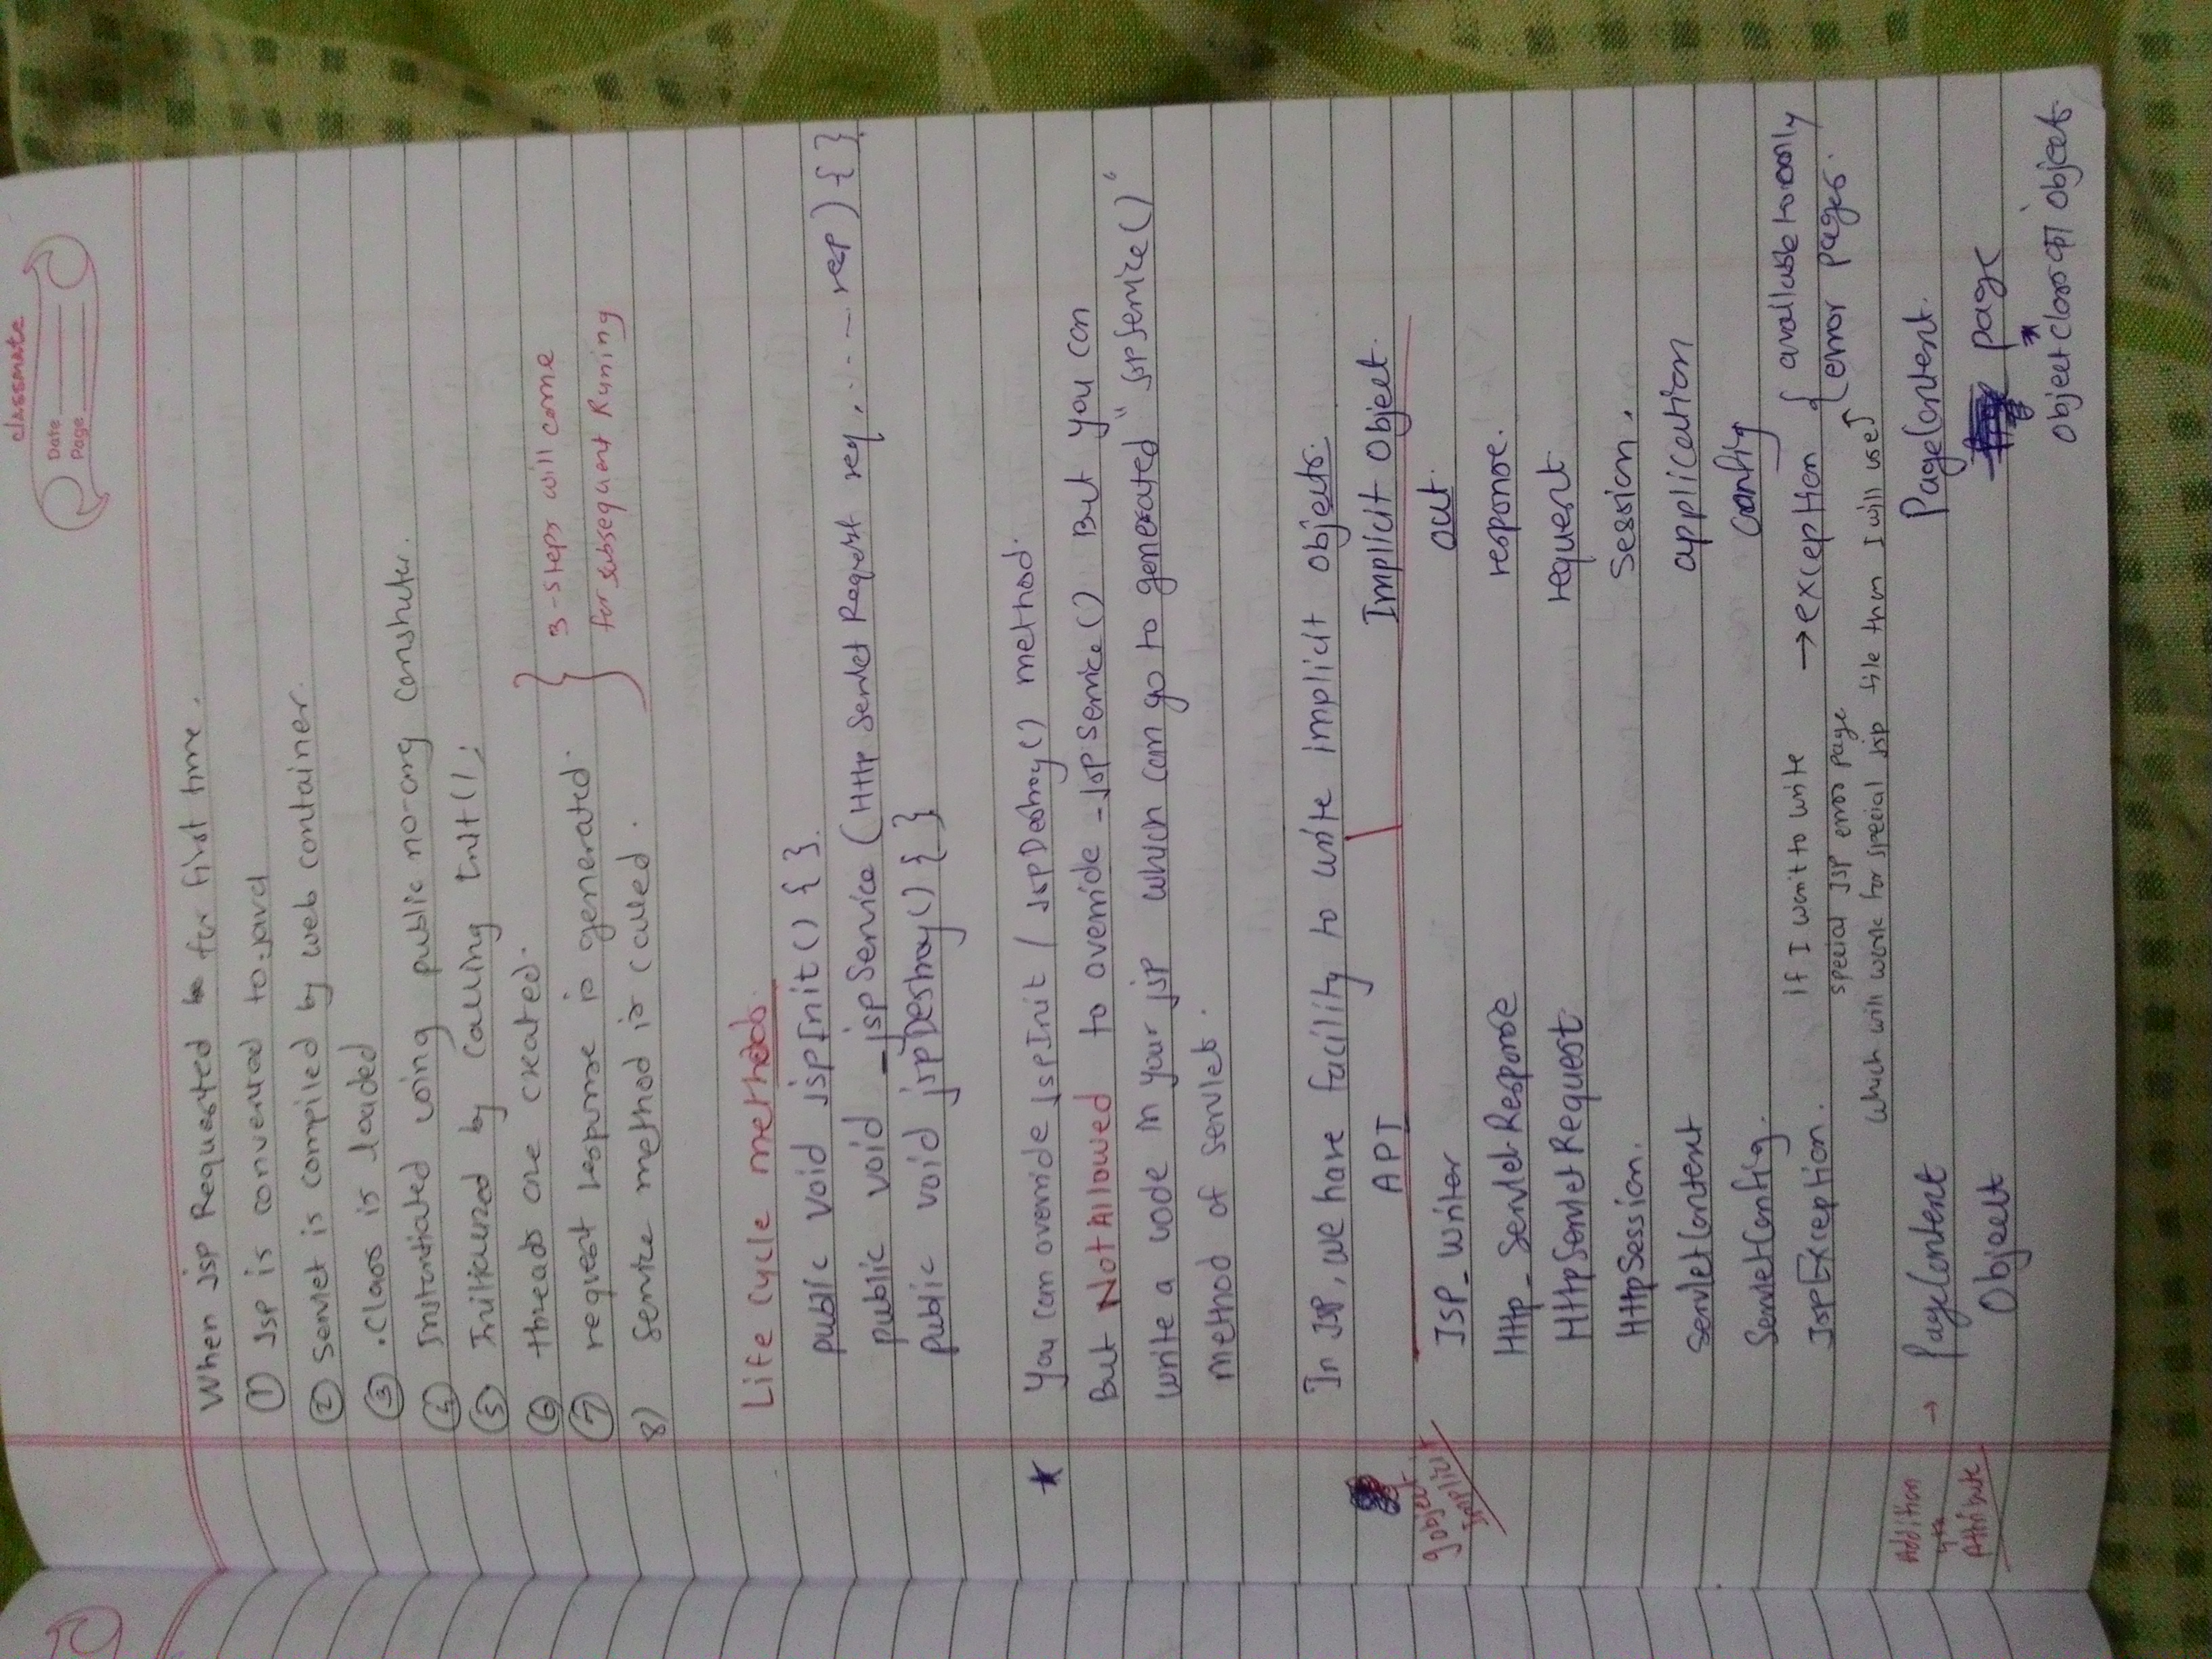 classmate
Date
Page
When Jsp Requested for first time.
① Jsp is converted to .java
② Servlet is compiled by web container.
③ .Class is loaded
④ Instantiated using public no-arg
⑤ Initialized by calling Init();
⑥ threads are created.
⑦ request response is generated.
8) Service method is called.
3-steps will come
for subsequent Runing
Life Cycle methods.
public void jspInit() { }.
public void _jspService (HttpServletRequest req, ... rep) { }
public void jspDestroy() { }
★ You can override jspInit / JspDestroy() method.
But Not Allowed to override _JspService() But you can
write a code in your jsp which can go to generated "JspService()"
method of servlet.
In JSP, we have facility to write implicit objects.
API Implicit Object.
9 object
Implicit
JSP_Writer out.
Http_ServletResponse response.
HttpServletRequest request
HttpSession. Session.
ServletContext application
ServletConfig. Config
JspException. if I want to write → exception { available to only
special JSP error page error pages.
which will work for special jsp file then I will use
Addition
Attribute
→ PageContext PageContext.
Object page
Object class object.